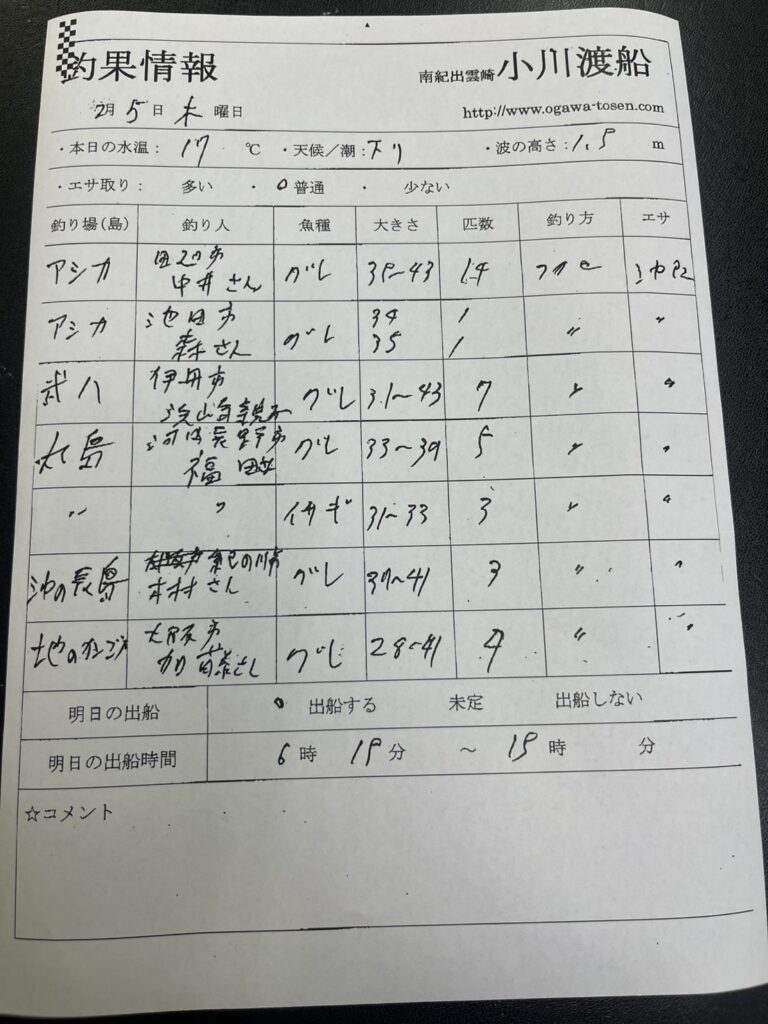 釣果情報
南紀出雲崎 小川渡船
2月 5日 木 曜日
http://www.ogawa-tosen.com
・本日の水温： 17 ℃ ・天候／潮：下り ・波の高さ：1.5 m
・エサ取り： 多い ・ 0普通 ・ 少ない
釣り場（島） 釣り人 魚種 大きさ 匹数 釣り方 エサ
アシカ 田辺市 中井さん グレ 35〜43 14 フカセ
アシカ 池田市 森さん グレ 34 1 〃 〃
35 1
伊丹市 グレ 31〜43 7 〃 〃
大島 河内長野市 福田 グレ 33〜39 5 〃 〃
〃 〃 イサギ 31〜33 3 〃 〃
沖の長島 紀の川市 木村さん グレ 37〜41 3 〃 〃
地の 大阪市 加藤さん グレ 28〜41 4 〃 〃
明日の出船 0 出船する 未定 出船しない
明日の出船時間 6時 15分 〜 15時 分
☆コメント